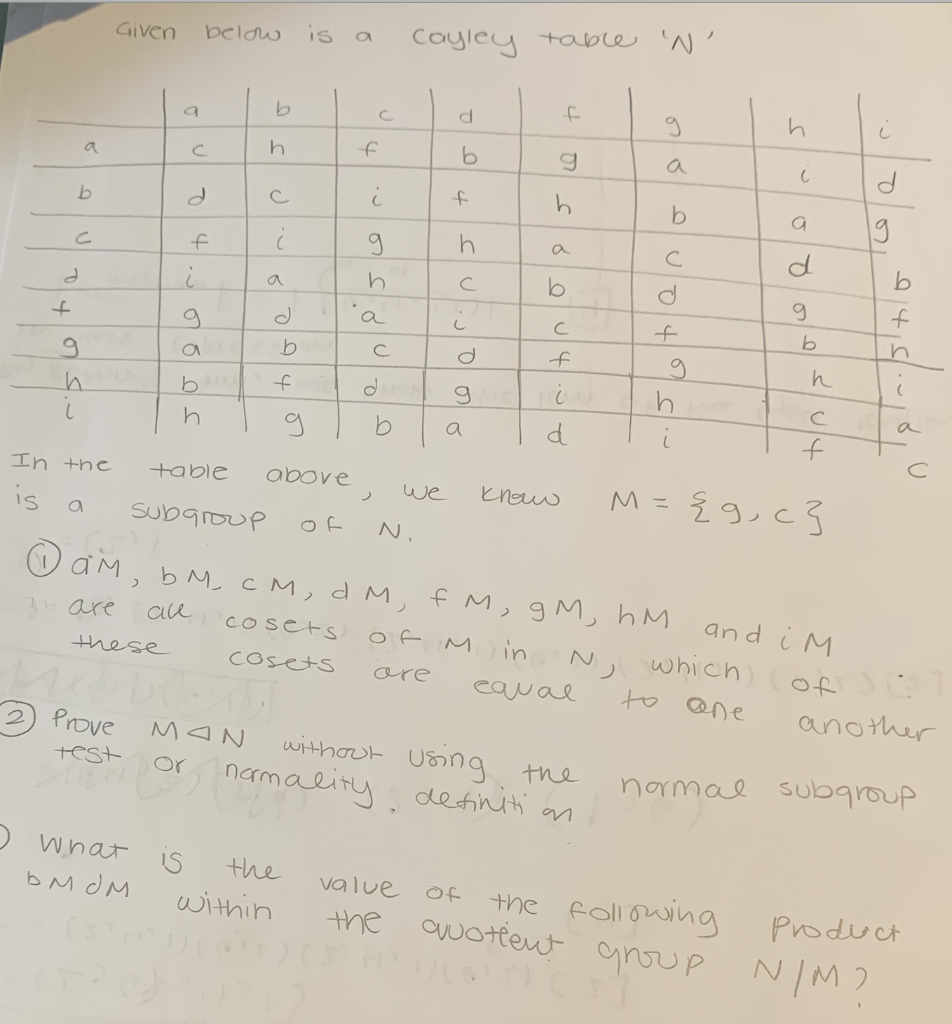 Given below is a Cayley table 'N'
a b c d f g h i
a c h f b g a i d
b d c i f h b a g
c f i g h a c d b
d i a h c b d g f
f g d a i c f b h
g a b c d f g h i
h b f d g i h c a
i h g b a d i f c
In the table above, we know M = {g, c}
is a subgroup of N.
① aM, bM, cM, dM, fM, gM, hM and iM
are all cosets of M in N, which of
these cosets are equal to one another
② Prove M ⊲ N without using the normal subgroup
test or normality definition
What is the value of the following product
bMdM within the quotient group N/M?